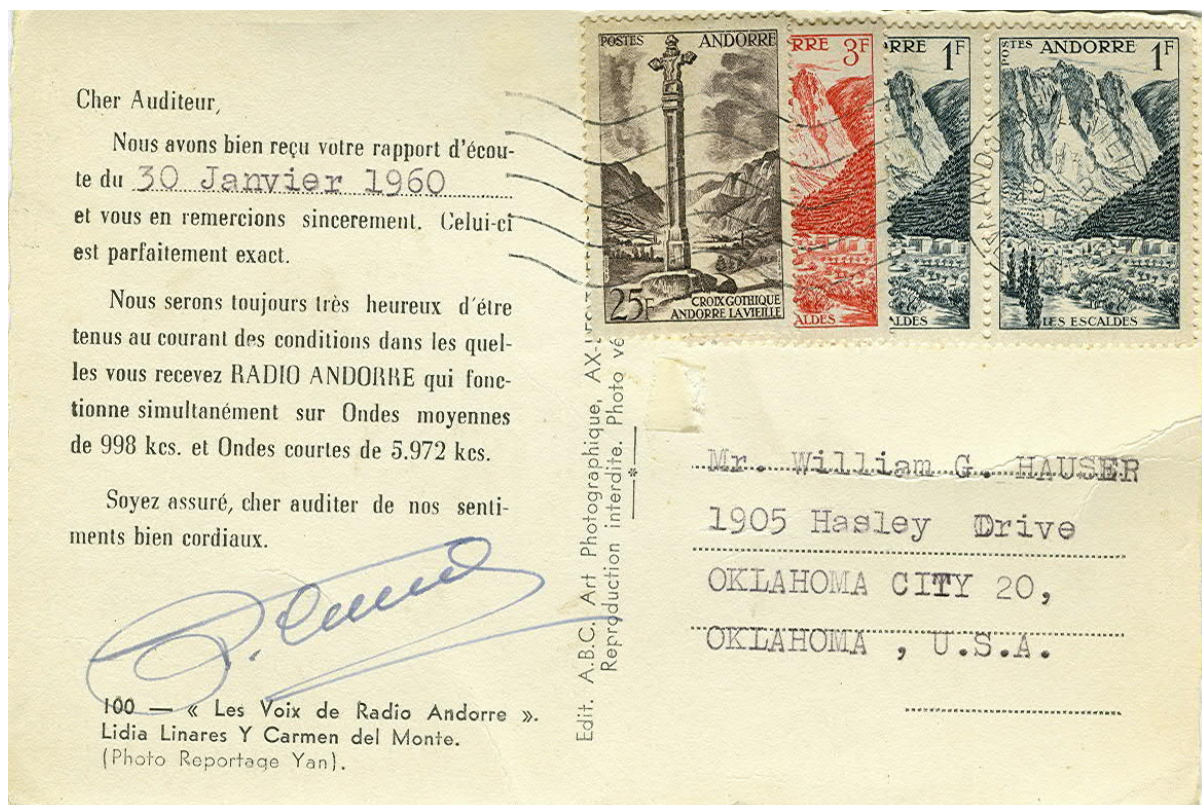 Cher Auditeur,
Nous avons bien reçu votre rapport d'écou-
te du 30 Janvier 1960
et vous en remercions sincerement. Celui-ci
est parfaitement exact.
Nous serons toujours très heureux d'étre
tenus au courant des conditions dans les quel-
les vous recevez RADIO ANDORRE qui fonc-
tionne simultanément sur Ondes moyennes
de 998 kcs. et Ondes courtes de 5.972 kcs.
Soyez assuré, cher auditer de nos senti-
ments bien cordiaux.
100 — « Les Voix de Radio Andorre ».
Lidia Linares Y Carmen del Monte.
(Photo Reportage Yan).
Edit. A.B.C. Art Photographique, AX-
Reproduction interdite. Photo vé
POSTES ANDORRE
25F
CROIX GOTHIQUE
ANDORRE LA VIEILLE
RRE 3F
ALDES
RRE 1F
ALDES
POSTES ANDORRE 1F
LES ESCALDES
Mr. William G. HAUSER
1905 Hasley Drive
OKLAHOMA CITY 20,
OKLAHOMA , U.S.A.